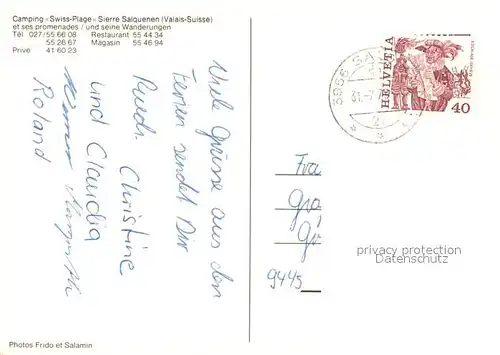 Camping «Swiss-Plage» Sierre Salquenen (Valais-Suisse)
et ses promenades / und seine Wanderungen
Tél 027/55 66 08 Restaurant 55 44 34
55 26 67 Magasin 55 46 94
Privé 41 60 23
Viele Grüsse aus den
Ferien sendet Dir
Ruedi Christine
und Claudia
Roland
HELVETIA
40
31.-7
2
Fra
9445
privacy protection
Datenschutz
Photos Frido et Salamin